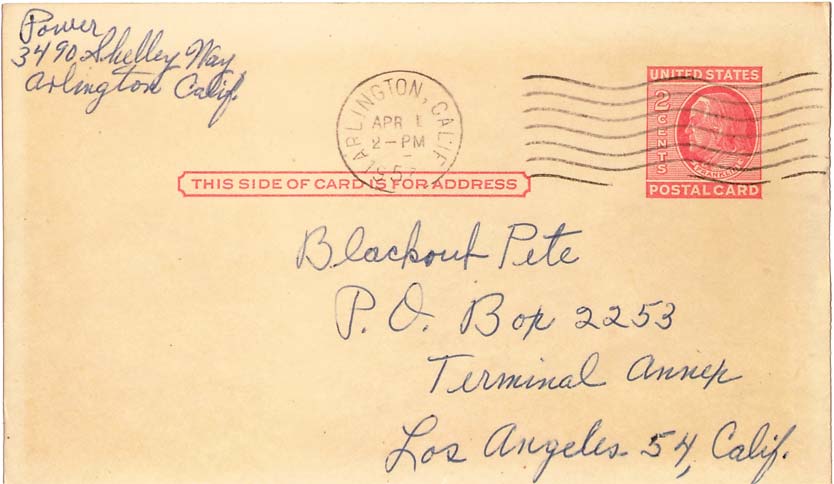 Power
3490 Shelley Way
Arlington Calif.
ARLINGTON, CALIF.
APR 1
2-PM
1957
UNITED STATES
2 CENTS
FRANKLIN
POSTAL CARD
THIS SIDE OF CARD IS FOR ADDRESS
Blackout Pete
P. O. Box 2253
Terminal Annex
Los Angeles 54, Calif.